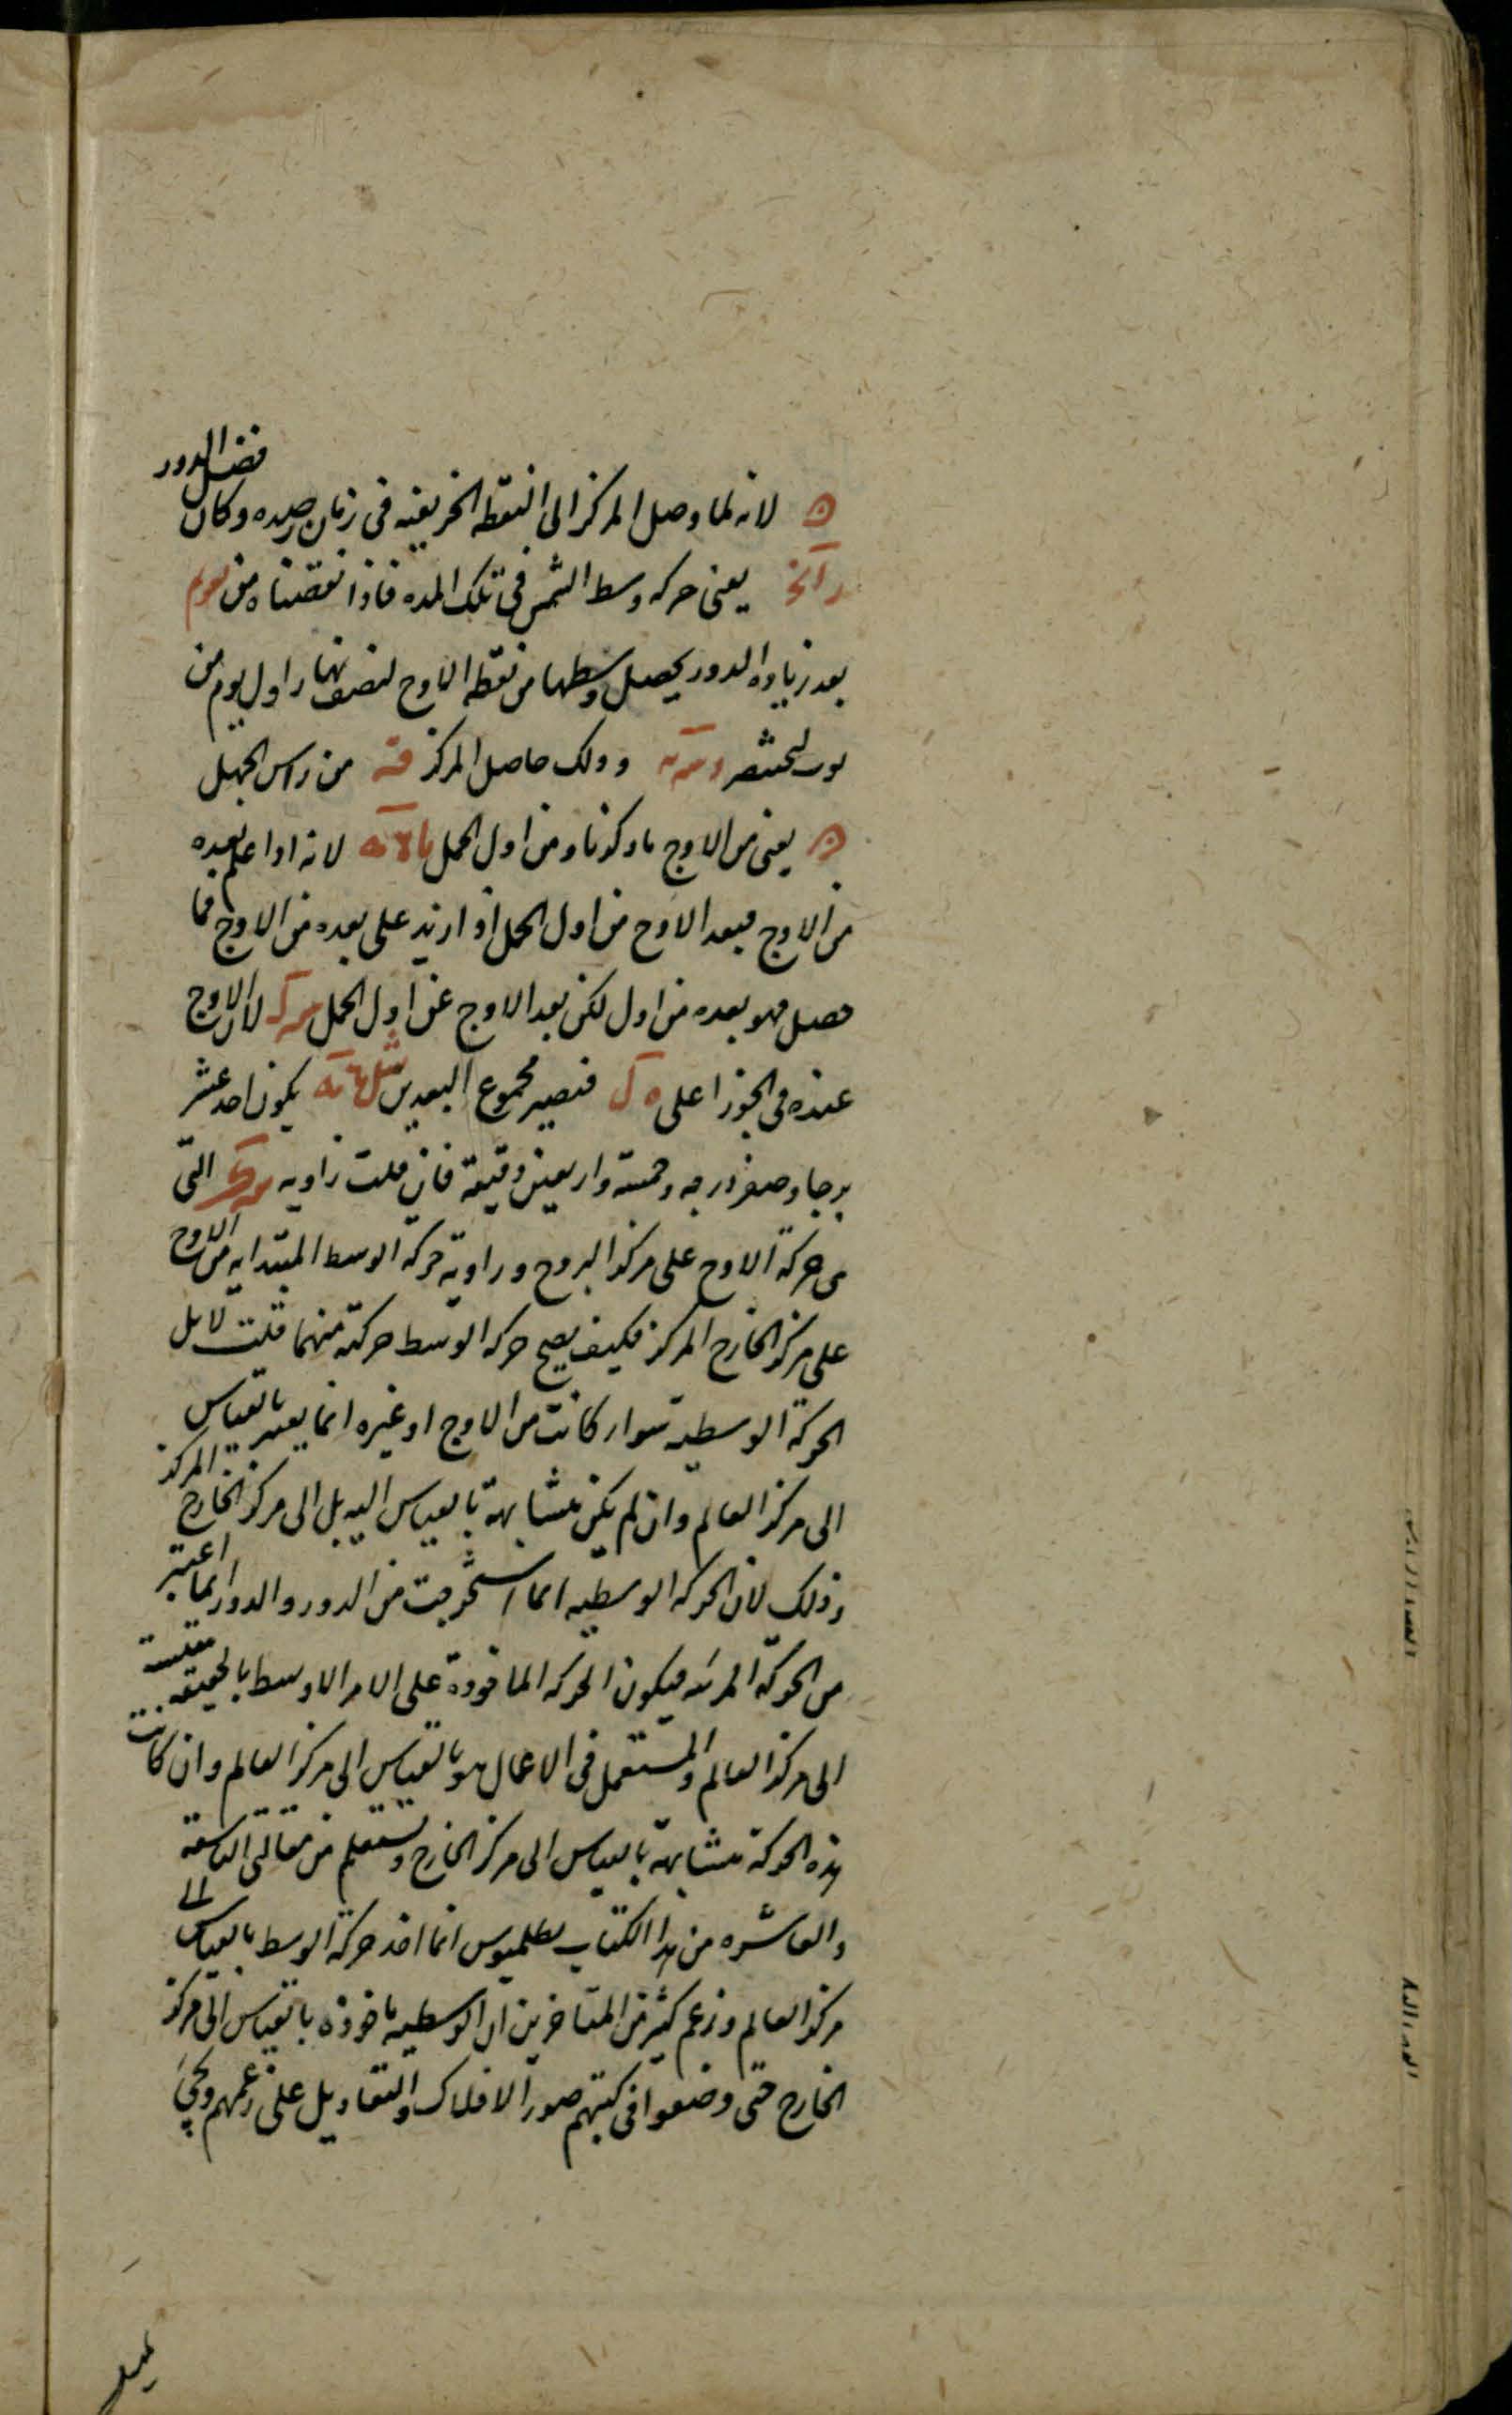 لانه لما وصل المركز الى النقطه الخريفيه فى زمان رصده وكان فضل الدور
يعنى حركه وسط الشمس فى تلك المده فاذا نقصناه من
بعد زياده الدور يحصل وسطها من نقطه الاوج لنصف نهار اول يوم من
وذلك حاصل المركز من راس الحمل
يعنى من الاوج ما ذكرنا ومن اول الحمل لانه اذا علم بعده
من الاوج فبعد الاوج من اول الحمل اذا زيد على بعده من الاوج فما
حصل فهو بعده من اول لكن بعد الاوج عن اول الحمل لان الاوج
عنده فى الجوزا على فيصير مجموع البعدين يكون احد عشر
برجا وصفر درجه وخمسة واربعين دقيقة فان قلت زاويه التى
من حركة الاوج على مركز البروج وزاوية حركه الوسط المبتدايه من الاوج
على مركز الخارج المركز فكيف يصح حركه الوسط حركته منهما قلت لا بل
الحركة الوسطية سواء كانت من الاوج او غيره انما يعتبر بالقياس
الى مركز العالم وان لم يكن متشابهة بالقياس اليه بل الى مركز الخارج المركز
وذلك لان الحركه الوسطيه انما استخرجت من الدور والدور انما اعتبر
من الحركة المرئيه فيكون الحركه الماخوذة على الامر الاوسط بالحقيقه مقيسة
الى مركز العالم والمستعمل فى الاعمال هو بالقياس الى مركز العالم وان كانت
هذه الحركة متشابهة بالقياس الى مركز الخارج وستعلم من مقالتى التاسعة
والعاشره من هذا الكتاب بطلميوس انما اخذ حركة الوسط بالقياس الى
مركز العالم وزعم كثير من المتاخرين ان الوسطيه ماخوذه بالقياس الى مركز
الخارج حتى وضعوا فى كتبهم صور الافلاك والتعاديل على زعمهم